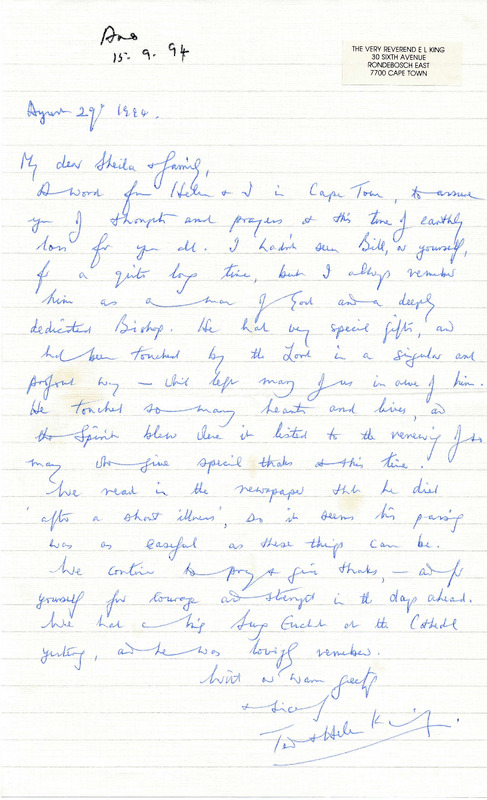 Ans
15. 9. 94
THE VERY REVEREND E L KING
30 SIXTH AVENUE
RONDEBOSCH EAST
7700 CAPE TOWN
August 29th 1994.
My dear Sheila & family,
A word from Helen & I in Cape Town, to assure
you of thoughts and prayers at this time of earthly
loss for you all. I hadn't seen Bill, or yourself,
for a quite long time, but I always remember
him as a man of God and a deeply
dedicated Bishop. He had very special gifts, and
had been touched by the Lord in a singular and
profound way — which left many of us in awe of him.
He touched so many hearts and lives, and
the Spirit blew where it listed to the renewing of so
many who give special thanks at this time.
We read in the newspaper that he died
'after a short illness', so it seems his passing
was as easeful as these things can be.
We continue to pray & give thanks, — and for
yourself for courage and strength in the days ahead.
We had a big Sung Eucharist at the Cathedral
yesterday, and he was lovingly remembered.
With our warm greetings
& sincerely
Ted & Helen King.